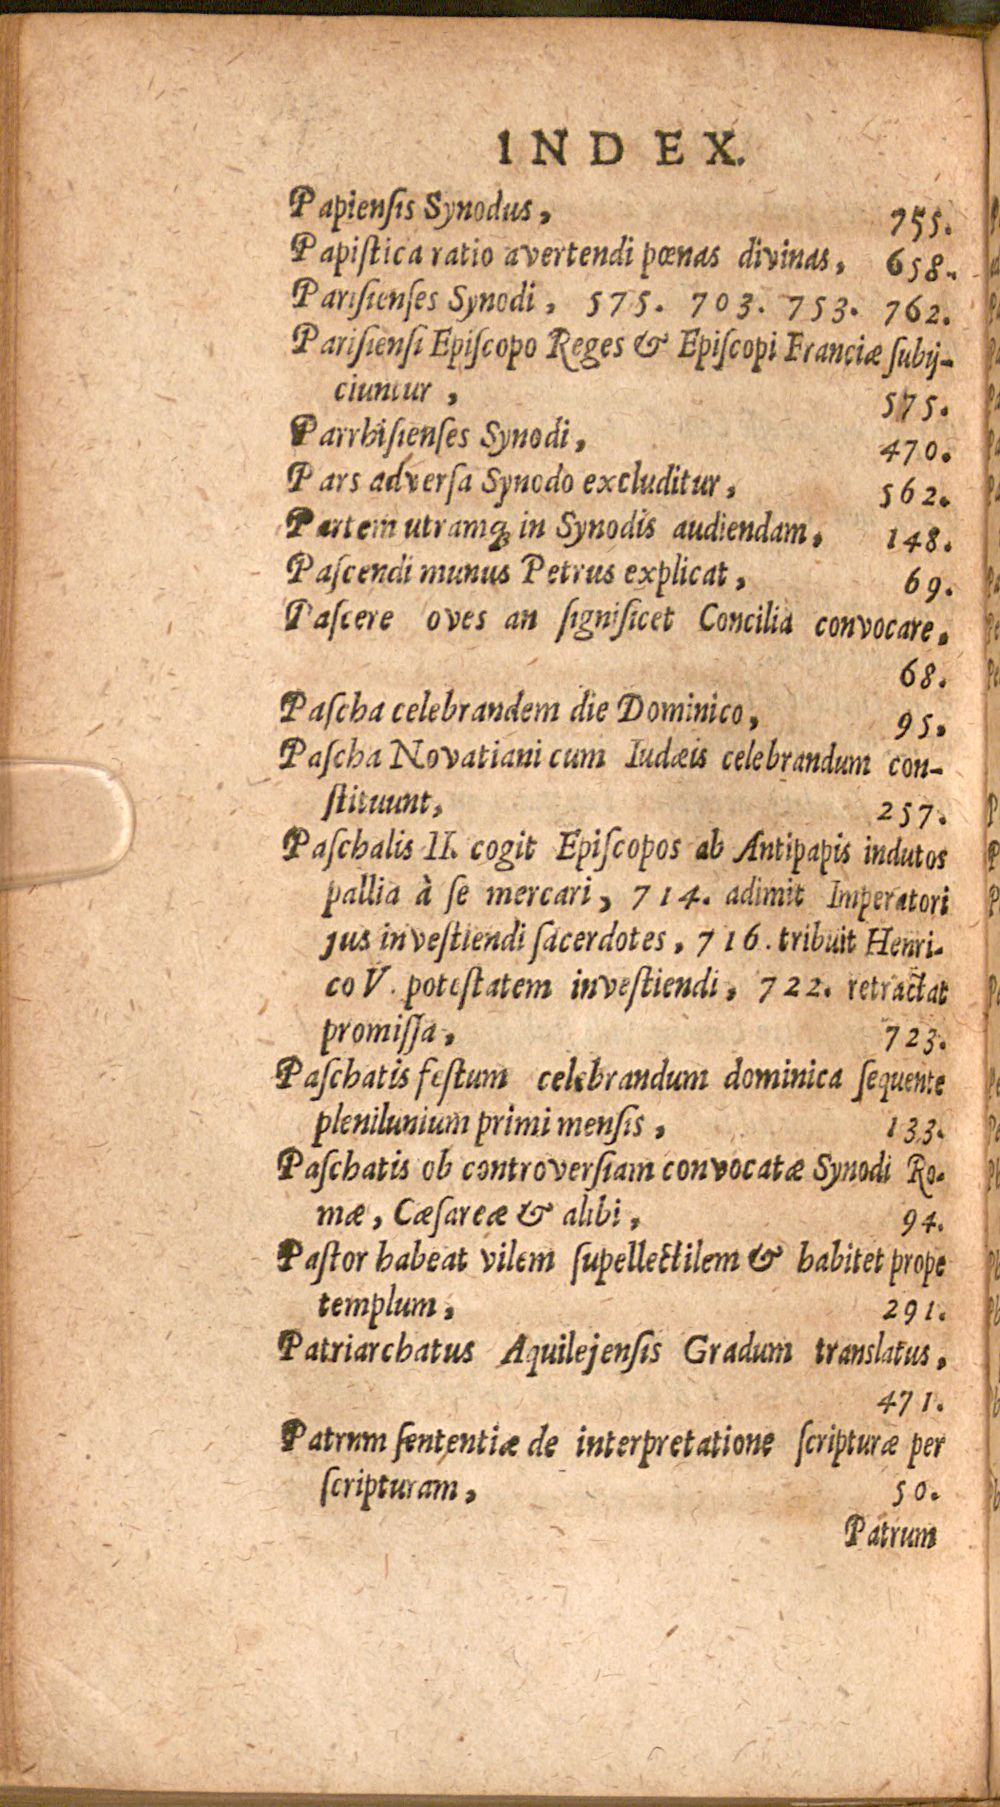 INDEX.
Papienſis Synodus, 755.
Papiſtica ratio avertendi pœnas divinas, 658.
Pariſienſes Synodi, 575. 703. 753. 762.
Pariſienſi Epiſcopo Reges & Epiſcopi Franciæ ſubij-
ciuntur, 575.
Parrhiſienſes Synodi, 470.
Pars adverſa Synodo excluditur, 562.
Partem utramq; in Synodis audiendam, 148.
Paſcendi munus Petrus explicat, 69.
Paſcere oves an ſignificet Concilia convocare,
68.
Paſcha celebrandem die Dominico, 95,
Paſcha Novatiani cum Iudæis celebrandum con-
ſtituunt, 257.
Paſchalis II. cogit Epiſcopos ab Antipapis indutos
pallia à ſe mercari, 714. adimit Imperatori
jus inveſtiendi ſacerdotes, 716. tribuit Henri-
co V. poteſtatem inveſtiendi, 722. retractat
promiſſa, 723.
Paſchatis feſtum celebrandum dominica ſequente
plenilunium primi menſis, 133.
Paſchatis ob controverſiam convocatæ Synodi Ro-
mæ, Cæſareæ & alibi, 94.
Paſtor habeat vilem ſupellectilem & habitet prope
templum, 291.
Patriarchatus Aquilejenſis Gradum translatus,
471.
Patrum ſententiæ de interpretatione ſcripturæ per
ſcripturam, 50.
Patrum